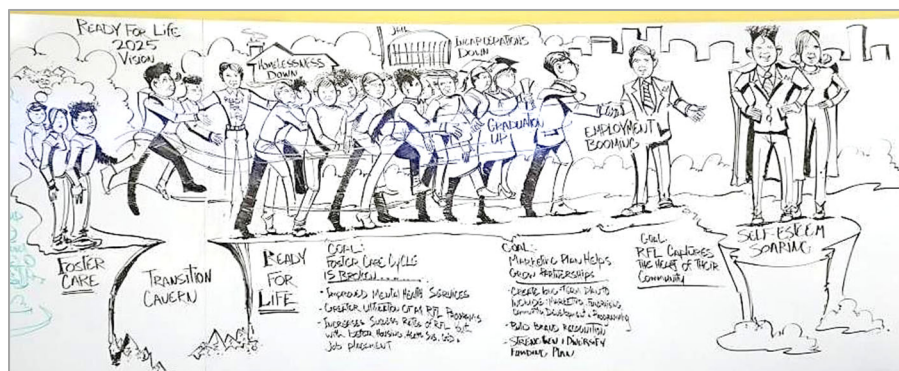 READY FOR LIFE
2025
VISION
HOMELESSNESS
DOWN
JAIL
INCARCERATIONS
DOWN
GRADUATION
UP
EMPLOYMENT
BOOMING
SELF-ESTEEM
SOARING
FOSTER
CARE
TRANSITION
CAVERN
READY
FOR
LIFE
GOAL:
FOSTER CARE CYCLE
IS BROKEN........
• IMPROVED MENTAL HEALTH SERVICES
• GREATER UTILIZATION OF ALL RFL PROGRAMS
• INCREASES SUCCESS RATES OF RFL YOUTH
WITH HOUSING,
JOB PLACEMENT
GOAL:
MARKETING PLAN HELPS
GROW PARTNERSHIPS
• CREATE LONG-TERM PLAN TO
INCLUDE: MARKETING, FUNDRAISING,
COMMUNITY DEVELOPMENT & PROGRAMMING
• BUILD BRAND RECOGNITION
• STRENGTHEN & DIVERSIFY
FUNDING PLAN
GOAL:
RFL CAPTURES
THE HEART OF THEIR
COMMUNITY